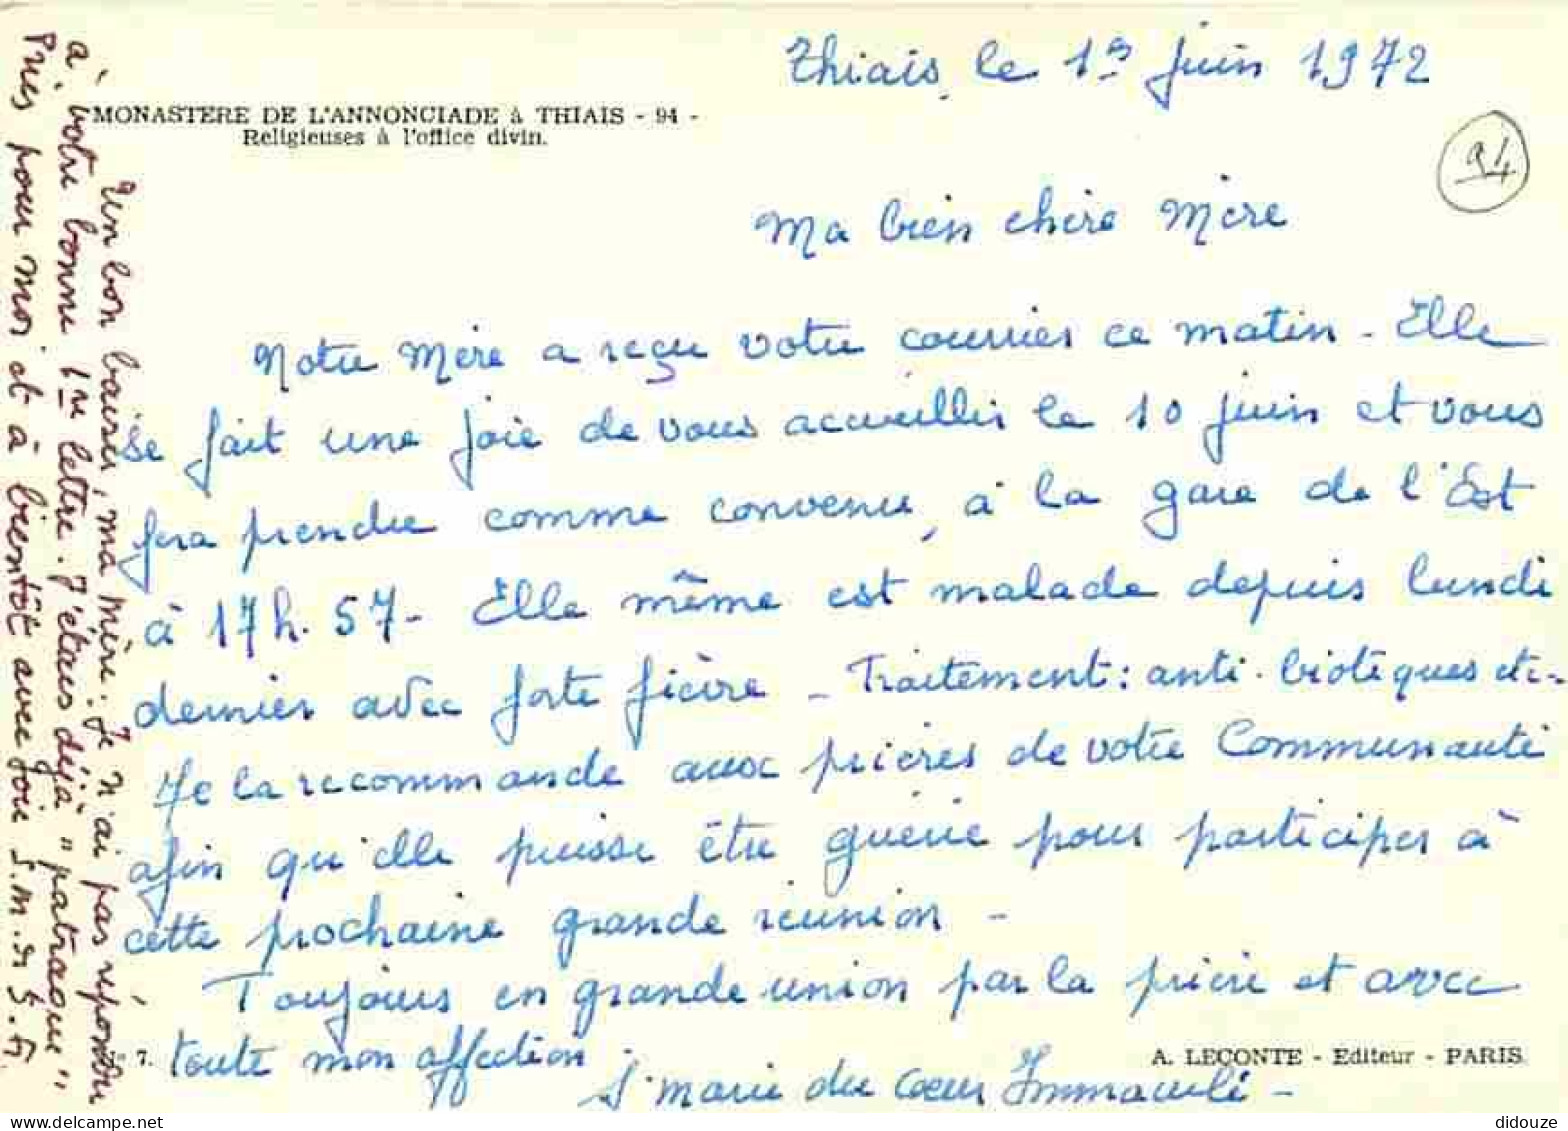 Thiais, le 1er juin 1972
MONASTERE DE L'ANNONCIADE à THIAIS - 94 -
Religieuses à l'office divin.
94
Ma bien chère Mère
Notre Mère a reçu votre courrier ce matin - Elle
se fait une joie de vous accueillir le 10 juin et vous
fera prendre comme convenu, à la gare de l'Est
à 17h.57 - Elle même est malade depuis lundi
dernier avec forte fièvre - Traitement : anti-biotiques etc -
Je la recommande aux prières de votre Communauté
afin qu'elle puisse être guérie pour participer à
cette prochaine grande réunion -
Toujours en grande union par la prière et avec
toute mon affection
Sr Marie du Coeur Immaculé -
7.
A. LECONTE - Editeur - PARIS
Un bon baiser, ma Mère. Je n'ai pas répondu
à votre bonne 1re lettre. J'étais déjà "patraque"
Priez pour moi et à bientôt avec joie S. M. 
didouze